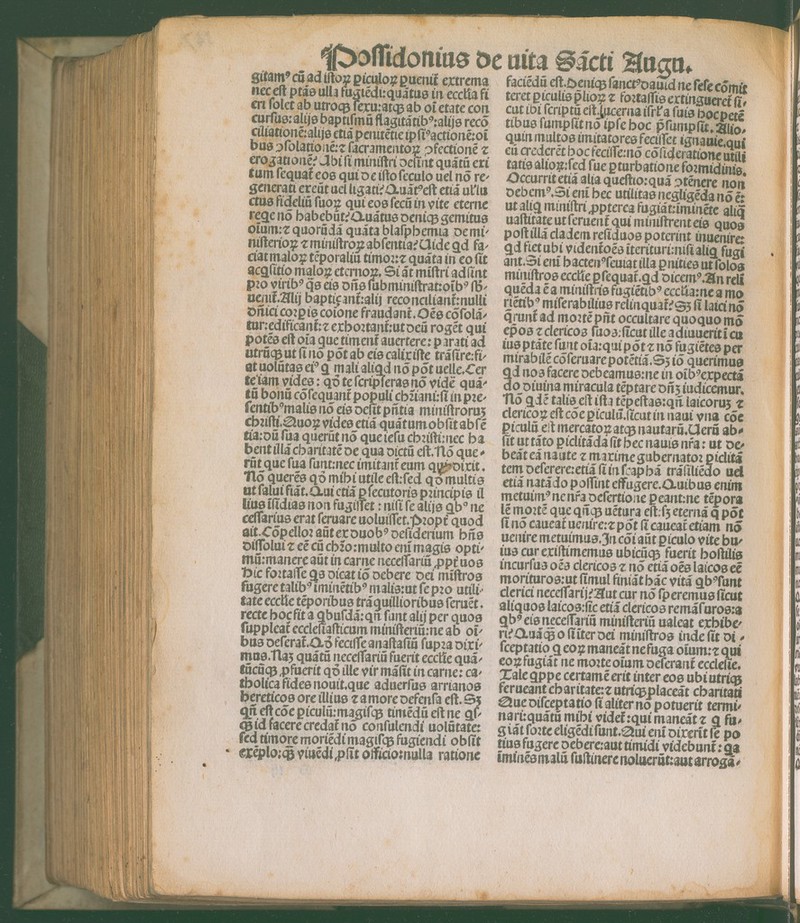 Possidonius de uita Sācti Augu.
gitamꝰ cū ad istoꝝ ꝑiculoꝝ ꝑuenit̄ extrema
nec est ptās ulla fugiēdi: quātus in ecclīa fi
eri solet ab utroqꝫ sexu: atqꝫ ab oī etate con
cursus: alijs baptismū flagitātibꝰ: alijs recō
ciliationē: alijs etiā penitētie ipsiꝰ actionē: oī
bus ꝯsolationē: ⁊ sacramentoꝝ ꝯfectionē ⁊
erogationē? Ubi si ministri desint quātū exi
tium sequat̄ eos qui de isto seculo uel nō re-
generati exeūt uel ligati? Quātꝰ est etiā ul'lu
ctus fideliū suoꝝ qui eos secū in vite eterne
reqe nō habebūt? Quātus deniqꝫ gemitus
oīum: ⁊ quorūdā quāta blasphemia de mi-
nisterioꝝ ⁊ ministroꝝ absentia? Uide qd fa-
ciat maloꝝ tēporaliū timor: ⁊ quāta in eo sit
acqsitio maloꝝ eternoꝝ. Si āt mīstri adsint
pro viribꝰ qs eis dn̄s subministrat: oībꝰ sb̄-
uenit̄. Alij baptiçant̄: alij reconciliant̄: nulli
dn̄ici corpis coione fraudant̄. Oēs cōsolā-
tur: edificant̄: ⁊ exhortant̄: ut deū rogēt qui
potēs est oīa que timent̄ auertere: parati ad
utrūqꝫ ut si nō pōt ab eis calix iste trāsire: fi-
at uolūtas eiꝰ q mali aliqd nō pōt uelle. Cer
te iam vides: qd̄ te scripseras nō vidē quā-
tū bonū cōsequant̄ populi chr̄iani: si in pre-
sentibꝰ malis nō eis desit pn̄tia ministroruꝫ
chr̄isti. Quoꝝ vides etiā quātum obsit absē
tia: dū sua querūt nō que iesu chr̄isti: nec ha
bent illā charitatē de qua dictū est. Nō que-
rūt que sua sunt: nec imitant̄ eum qui dixit.
Nō querēs qd̄ mihi utile est: sed qd̄ multis
ut salui fiāt. Qui etiā ꝑsecutoris principis il
lius īsidias non fugisset: nisi se alijs qbꝰ ne
cessarius erat seruare uoluisset. Propt̄ quod
ait. Cōpellor aūt ex duobꝰ desiderium hn̄s
dissolui ⁊ eē cū chr̄o: multo eni magis opti-
mū: manere aūt in carne necessariū ꝓpt̄ uos
Hic fortasse qs dicat iō debere dei mīstros
fugere talibꝰ īminētibꝰ malis: ut se pro utili-
tate ecclīe tēporibus trāquillioribus seruēt.
recte hoc fit a qbusdā: qn̄ sunt alij per quos
suppleat̄ ecclesiasticum ministeriū: ne ab oī-
bus deserat̄. Qd̄ fecisse anastasiū supra dixi-
mus. Naꝫ quātū necessariū fuerit ecclīe quā-
tūcūqꝫ ꝓfuerit qd̄ ille vir māsit in carne: ca-
tholica fides nouit. que aduersus arrianos
hereticos ore illius ⁊ amore defensa est. Sꝫ
qn̄ est cōe ꝑiculū: magisqꝫ timēdū est ne qs-
qꝫ id facere credat̄ nō consulendi uolūtate:
sed timore moriēdi magisqꝫ fugiendi obsit
exēplo: qꝫ viuēdi ꝓsit officio: nulla ratione
faciēdū est. Deniqꝫ sanctꝰ dauid ne sese cōmit
teret ꝑiculis p̄lioꝝ ⁊ fortassis extingueret̄ si-
cut ibi scriptū est. lucerna isrl'a suis hoc petē
tibus sumpsit nō ipse hoc p̄sumpsit. Alio-
quin multos imitatores fecisset ignauie. qui
eū crederēt hoc fecisse: nō cōsideratione utili
tatis alioꝝ: sed sue ꝑturbatione formidinis.
Occurrit etiā alia questio: quā ꝯtēnere non
debemꝰ. Si eni hec utilitas negligēda nō ē:
ut aliq ministri ꝓpterea fugiāt: iminēte aliq̄
uastitate ut seruent̄ qui ministrent eis quos
post illā cladem residuos poterint inuenire:
qd fiet ubi vident̄ oēs iterituri: nisi aliq fugi
ant. Si eni hactenꝰ seuiat illa ꝑnities ut solos
ministros ecclīe ꝑsequat̄. qd dicemꝰ. An reli
quēda ē a ministris fugiētibꝰ ecclīa: ne a mo
riētibꝰ miserabilius relinquat̄? Sꝫ si laici nō
q̄runt̄ ad mortē pn̄t occultare quoquo mō
epōs ⁊ clericos suos: sicut ille adiuuerit ī cu
ius ptāte sunt oīa: qui pōt ⁊ nō fugiētes per
mirabilē cōseruare potētiā. Sꝫ iō querimus
qd nos facere debeamus: ne in oībꝰ expectā
do diuina miracula tēptare dn̄ꝫ iudicemur.
Nō qdē talis est ista tēpestas: qn̄ laicoruꝫ ⁊
clericoꝝ est cōe ꝑiculū. sicut in naui vna cōe
ꝑiculū est mercatoꝝ atqꝫ nautarū. Uerū ab-
sit ut tāto ꝑiclitāda sit hec nauis nr̄a: ut de-
beāt eā naute ⁊ maxime gubernator ꝑiclitā
tem deserere: etiā si in scaphā trāsiliēdo uel
etiā natādo possint effugere. Quibus enim
metuimꝰ ne nr̄a desertione ꝑeant: ne tēpora
lē mortē que qn̄qꝫ uētura est: sꝫ eternā q̄ pōt
si nō caueat̄ uenire: ⁊ pōt si caueat̄ etiam nō
uenire metuimus. In cōi aūt ꝑiculo vite hu-
ius cur existimemus ubicūqꝫ fuerit hostilis
incursus oēs clericos ⁊ nō etiā oēs laicos eē
morituros: ut simul finiāt hāc vitā qbꝰ sunt
clerici necessarij? Aut cur nō speremus sicut
aliquos laicos: sic etiā clericos remāsuros: a
qbꝰ eis necessariū ministeriū ualeat exhibe-
ri? Quāqꝫ o si iter dei ministros inde sit di-
sceptatio q eoꝝ maneāt ne fuga oīum: ⁊ qui
eoꝝ fugiāt ne morte oīum deserant̄ ecclesie.
Tale qppe certamē erit inter eos ubi utriqꝫ
ferueant charitate: ⁊ utriqꝫ placeāt charitati
Que disceptatio si aliter nō potuerit termi-
nari: quātū mihi videt̄: qui maneāt ⁊ q fu-
giāt sorte eligēdi sunt. Qui eni dixerīt se po
tius fugere debere: aut timidi videbunt̄: qa
īminēs malū sustinere noluerūt: aut arrogā-